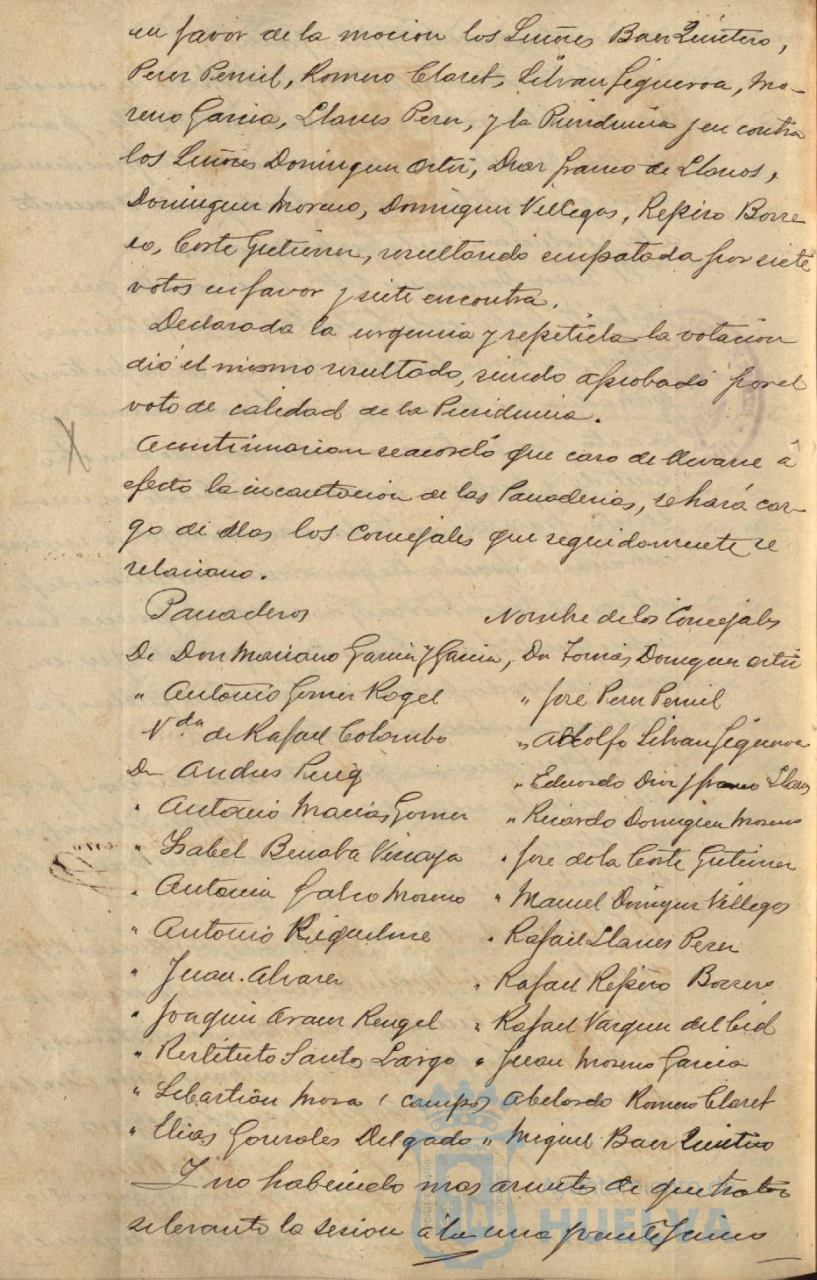 en favor de la mocion los Señores Baez Quintero,
Perez Pernil, Romero Claret, Silvan Figueroa, Mo-
reno Garcia, Llanes Perez, y la Presidencia y en contra
los Señores Dominguez Ortiz, Diaz franco de Llanos,
Dominguez Moreno, Dominguez Villegas, Repiso Borre
ro, Corte Gutierrez, resultando empatada por siete
votos en favor y siete en contra.
Declarada la urgencia y repetida la votacion
dió el mismo resultado, siendo aprobado por el
voto de calidad de la Presidencia.
A continuacion se acordó que caso de llevarse á
efecto la incautacion de las Panaderias, se hará car-
go de ellas los Concejales que seguidamente se
relaciono.
Panaderos Nombre de los Concejales
De Don Mariano Garcia y Garcia, Dn Tomás Dominguez Ortiz
" Antonio Gomez Rogel " José Perez Pernil
Vda de Rafael Colombo " Adolfo Silvan Figueroa
Dn Andres Puig " Eduardo Diaz y franco Llanos
" Antonio Macias Gomez " Ricardo Dominguez Moreno
" Isabel Benaba Vizcaya " Jose de la Corte Gutierrez
" Antonia Galvo Moreno " Manuel Dominguez Villegas
" Antonio Riquelme " Rafael Llanes Perez
" Juan Alvarez " Rafael Repiso Borrero
" Joaquin Aranez Rengel " Rafael Vazquez del Cid
" Restituto Santos Largo " Juan Moreno Garcia
" Sebastián Mora (campo) Abelardo Romero Claret
" Elias Gonzales Delgado " Miguel Baez Quintero
Y no habiendo mas asuntos de que tratar
se levanto la sesion a la una
HUELVA